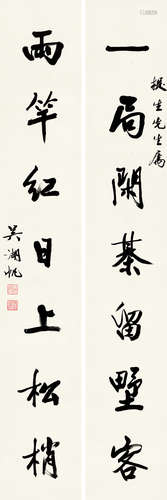 一局閒棊留墅客
生先生屬
兩竿紅日上松梢
吳湖帆